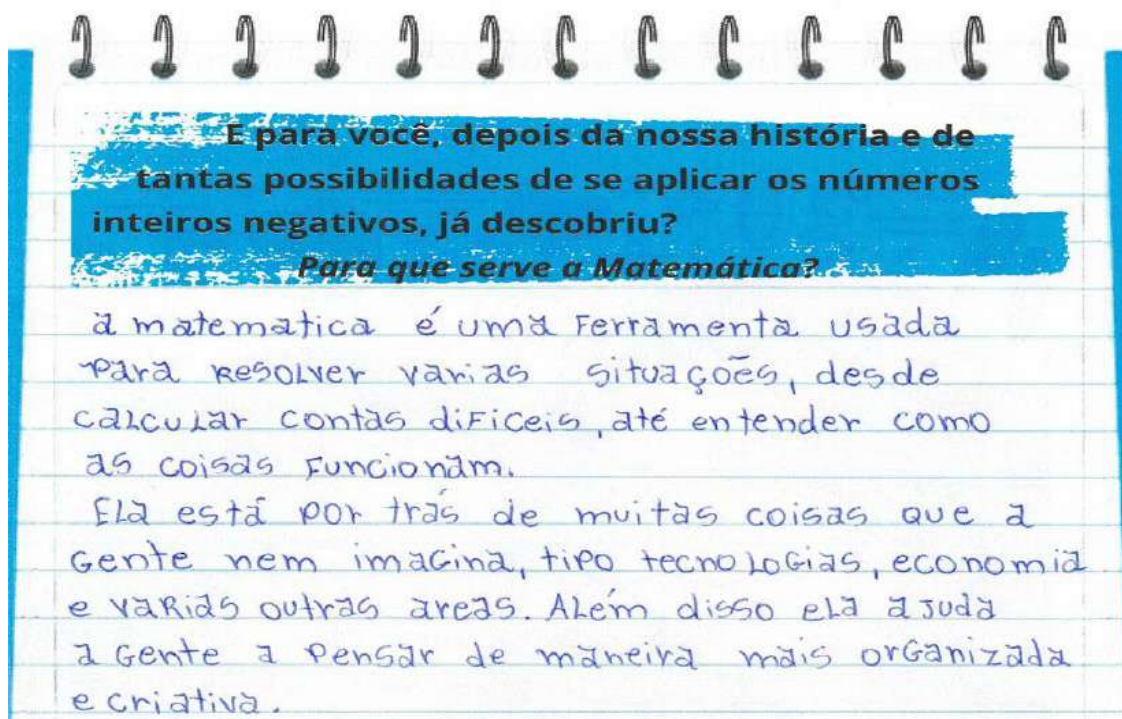 E para você, depois da nossa história e de
tantas possibilidades de se aplicar os números
inteiros negativos, já descobriu?
Para que serve a Matemática?
a matematica é uma Ferramenta usada
para resolver varias situações, desde
calcular contas diFiceis, até entender como
as coisas Funcionam.
Ela está por trás de muitas coisas que a
Gente nem imaGina, tipo tecnoloGias, economia
e varias outras areas. Além disso ela ajuda
a Gente a Pensar de maneira mais orGanizada
e criativa.